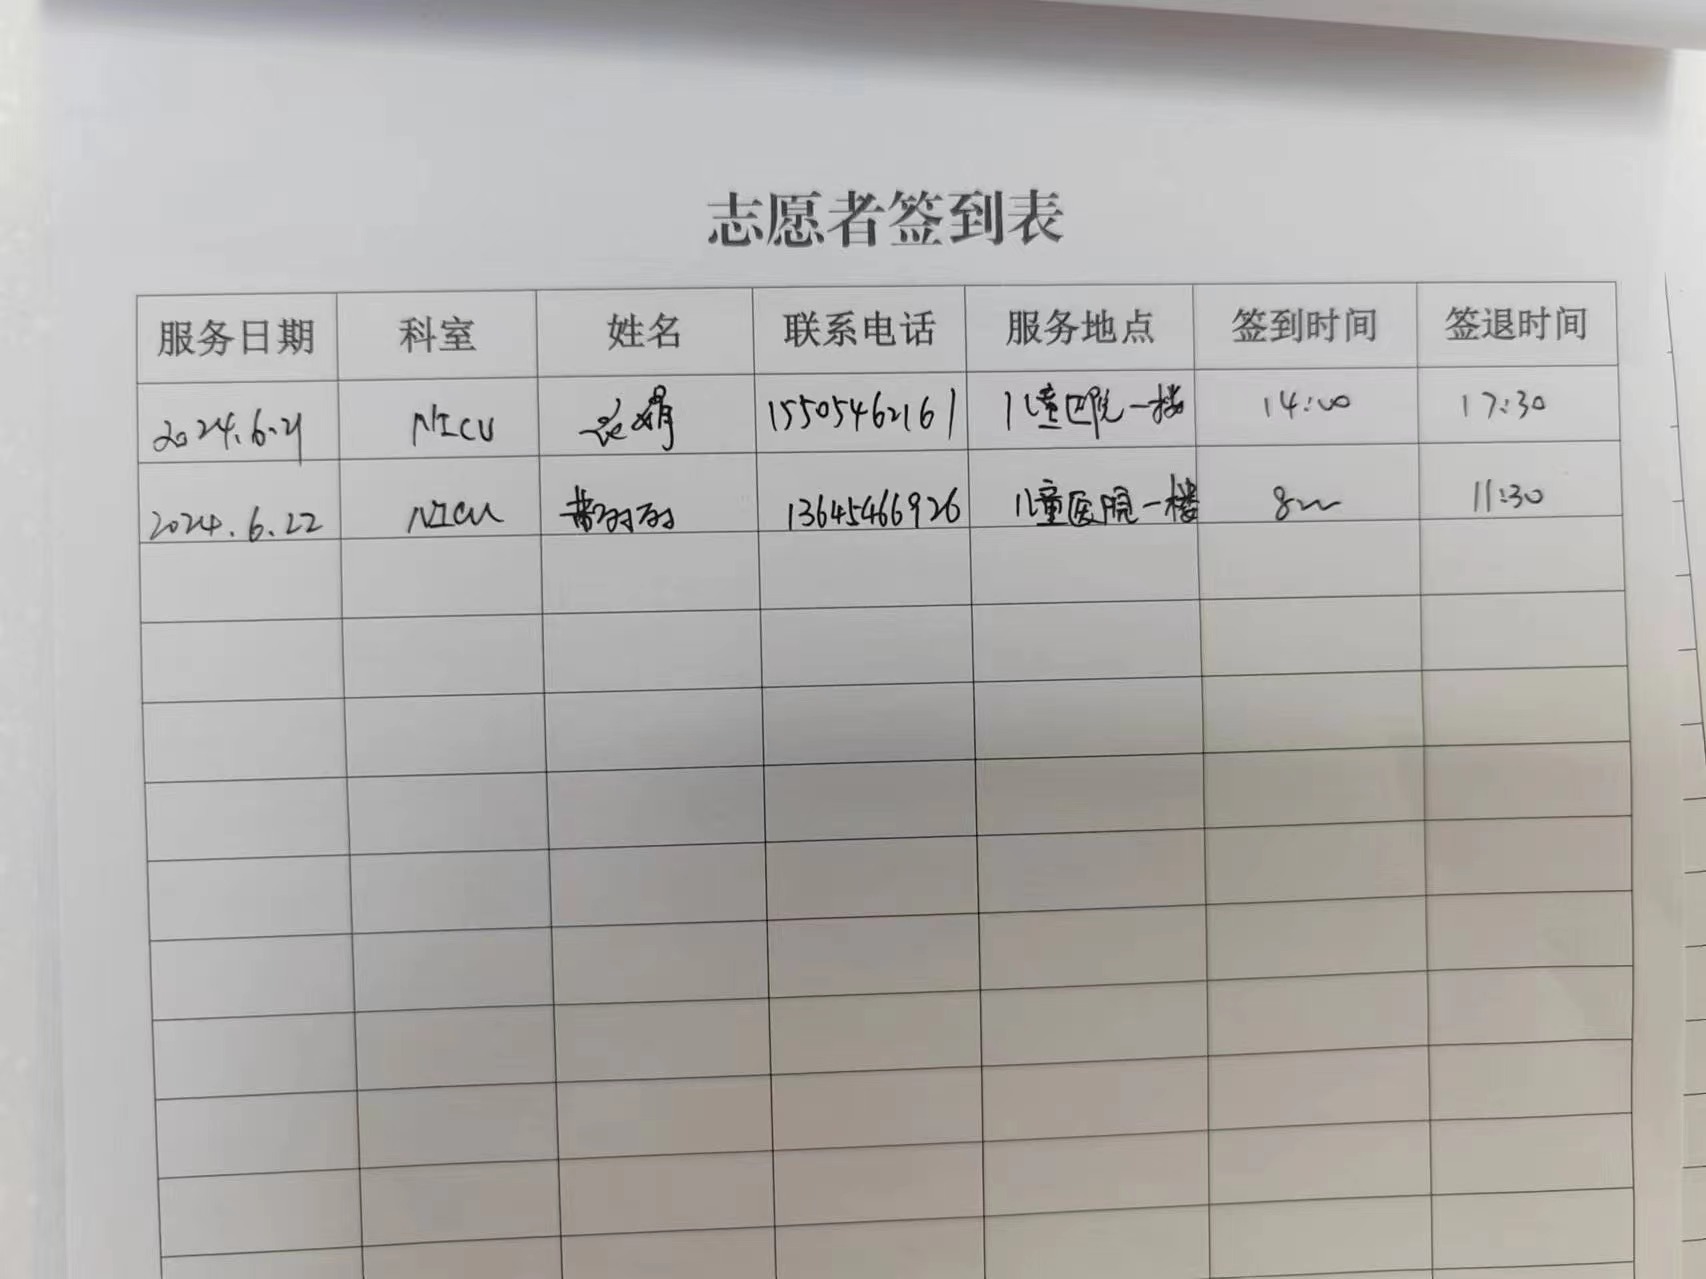 志愿者签到表
服务日期 科室 姓名 联系电话 服务地点 签到时间 签退时间
2024.6.21 NICU 娟 15505462161 儿童医院一楼 14:00 17:30
2024.6.22 NICU 13645466926 儿童医院一楼 8:00 11:30